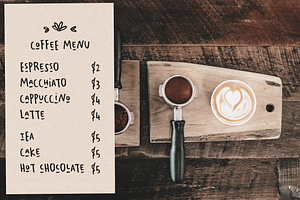 COFFEE MENU
ESPRESSO $2
MACCHIATO $3
CAPPUCCINO $4
LATTE $4
TEA $5
CAKE $5
HOT CHOCOLATE $5